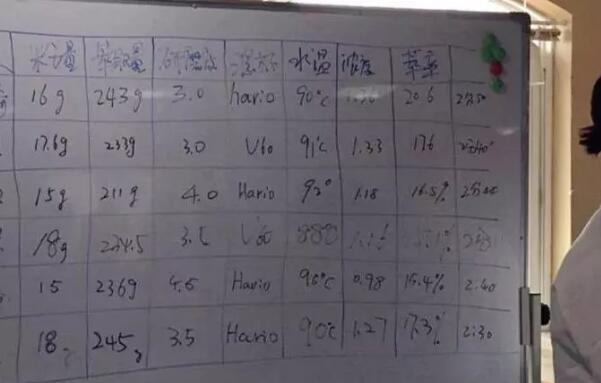 粉量 萃取量 研磨度 滤杯 水温 浓度 萃率
16g 243g 3.0 hario 90℃ 1.36 20.6
17.6g 233g 3.0 V60 91℃ 1.33 17.6
15g 211g 4.0 Hario 92° 1.18 16.5%
18g V60
15 236g 4.5 Hario 90℃ 0.98 15.4% 2:40
18g 245g 3.5 Hario 90℃ 1.27 17.3% 2:30